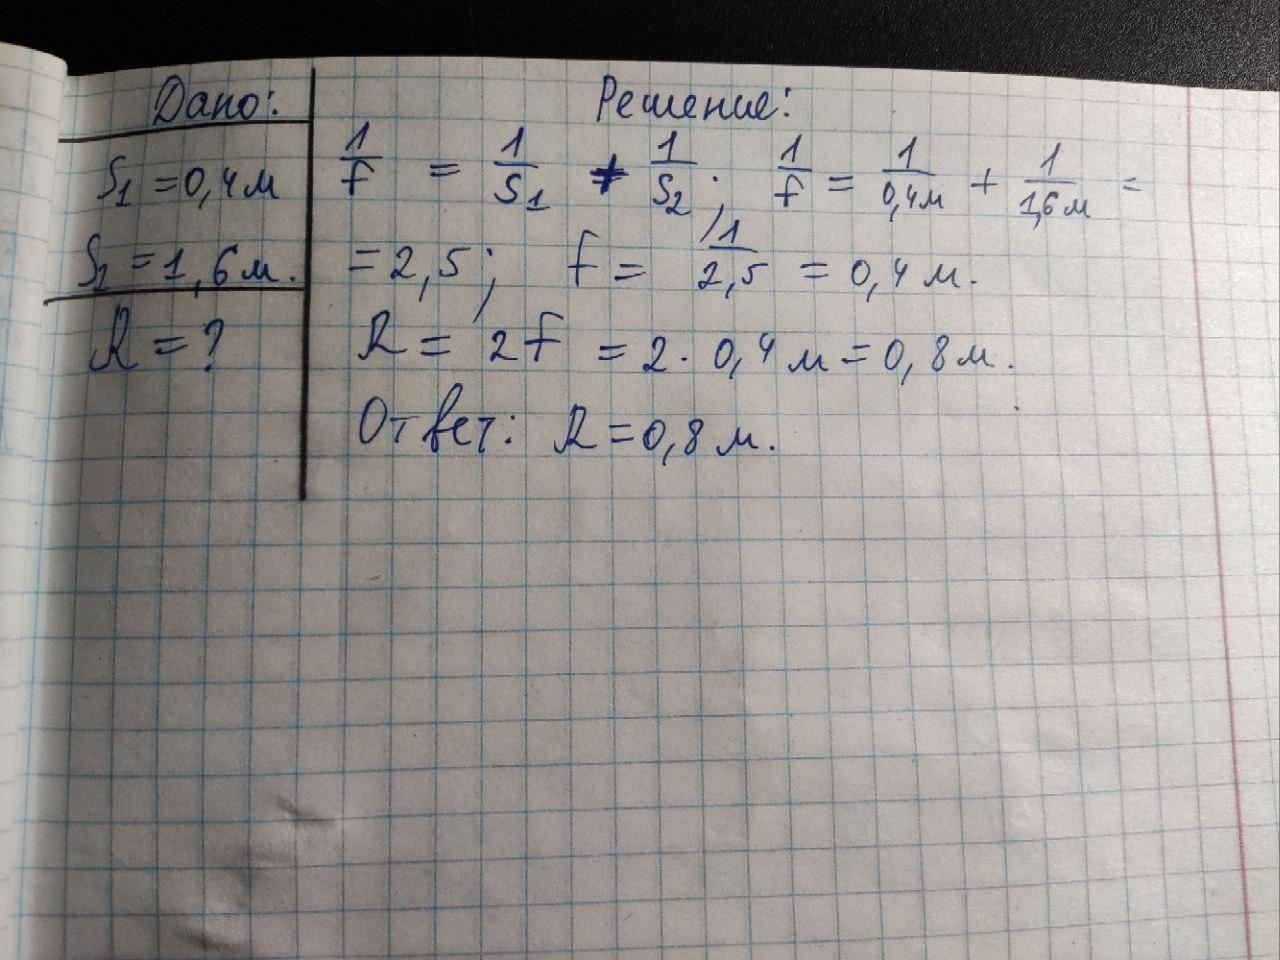 Дано:
S₁ = 0,4м
S₂ = 1,6м.
R = ?
Решение:
1/f = 1/S₁ + 1/S₂; 1/f = 1/0,4м + 1/1,6м =
= 2,5; f = 1/2,5 = 0,4 м.
R = 2f = 2 · 0,4 м = 0,8 м.
Ответ: R = 0,8 м.